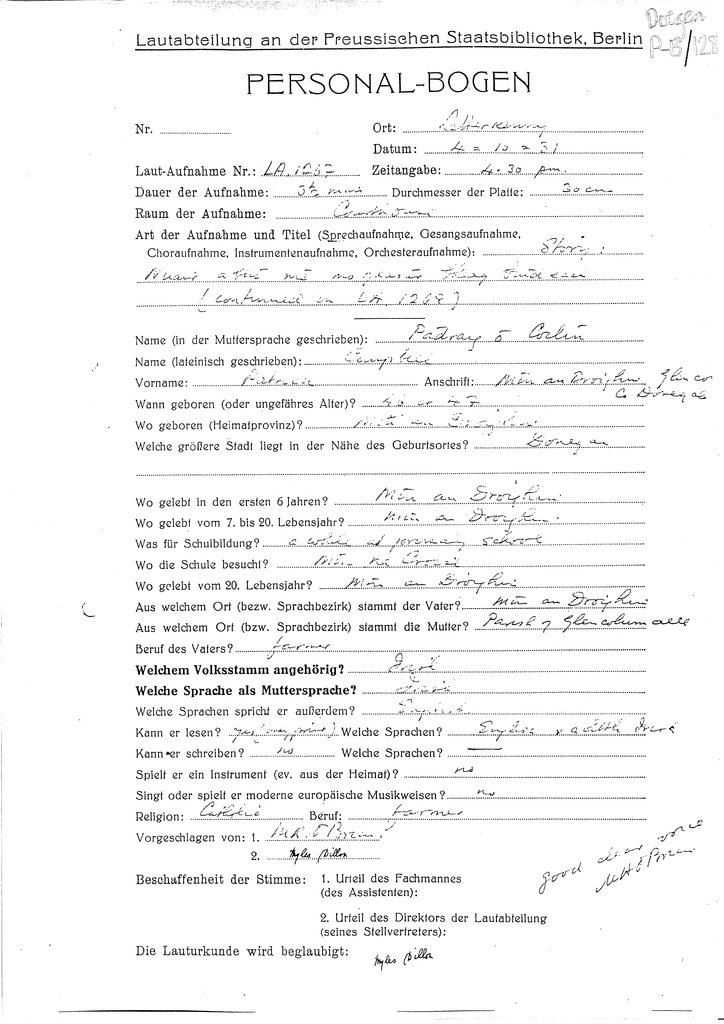 Doegen
P-B/128
Lautabteilung an der Preussischen Staatsbibliothek, Berlin
PERSONAL-BOGEN
Nr. Ort: Letterkenny
Datum: 4 = 10 = 31
Laut-Aufnahme Nr.: LA. 1267 Zeitangabe: 4.30 pm.
Dauer der Aufnahme: 3½ mins Durchmesser der Platte: 30 cm
Raum der Aufnahme: Courthouse
Art der Aufnahme und Titel (Sprechaufnahme, Gesangsaufnahme,
Choraufnahme, Instrumentenaufnahme, Orchesteraufnahme): Story:
Nuair a
(continued on LA 1268)
Name (in der Muttersprache geschrieben): Padraig ó
Name (lateinisch geschrieben): Campbell
Vorname: Patrick Anschrift: Mín an Droighin, Glenco
Co Donegal
Wann geboren (oder ungefähres Alter)? 46 or 47
Wo geboren (Heimatprovinz)? Mín an Droighin
Welche größere Stadt liegt in der Nähe des Geburtsortes? Donegal
Wo gelebt in den ersten 6 Jahren? Mín an Droighin
Wo gelebt vom 7. bis 20. Lebensjahr? Mín an Droighin
Was für Schulbildung? a while at primary school
Wo die Schule besucht? Mín na Croise
Wo gelebt vom 20. Lebensjahr? Mín an Droighin
Aus welchem Ort (bezw. Sprachbezirk) stammt der Vater? Mín an Droighin
Aus welchem Ort (bezw. Sprachbezirk) stammt die Mutter? Parish of Glencolumcille
Beruf des Vaters? farmer
Welchem Volksstamm angehörig? Irish
Welche Sprache als Muttersprache? Irish
Welche Sprachen spricht er außerdem? English
Kann er lesen? yes (only print) Welche Sprachen? English & a little Irish
Kann er schreiben? no Welche Sprachen? —
Spielt er ein Instrument (ev. aus der Heimat)? no
Singt oder spielt er moderne europäische Musikweisen? no
Religion: Catholic Beruf: farmer
Vorgeschlagen von: 1. Mr. Ó Brien
2. Myles Dillon
Beschaffenheit der Stimme: 1. Urteil des Fachmannes
(des Assistenten):
good clear voice
2. Urteil des Direktors der Lautabteilung
(seines Stellvertreters):
Die Lauturkunde wird beglaubigt: Myles Dillon